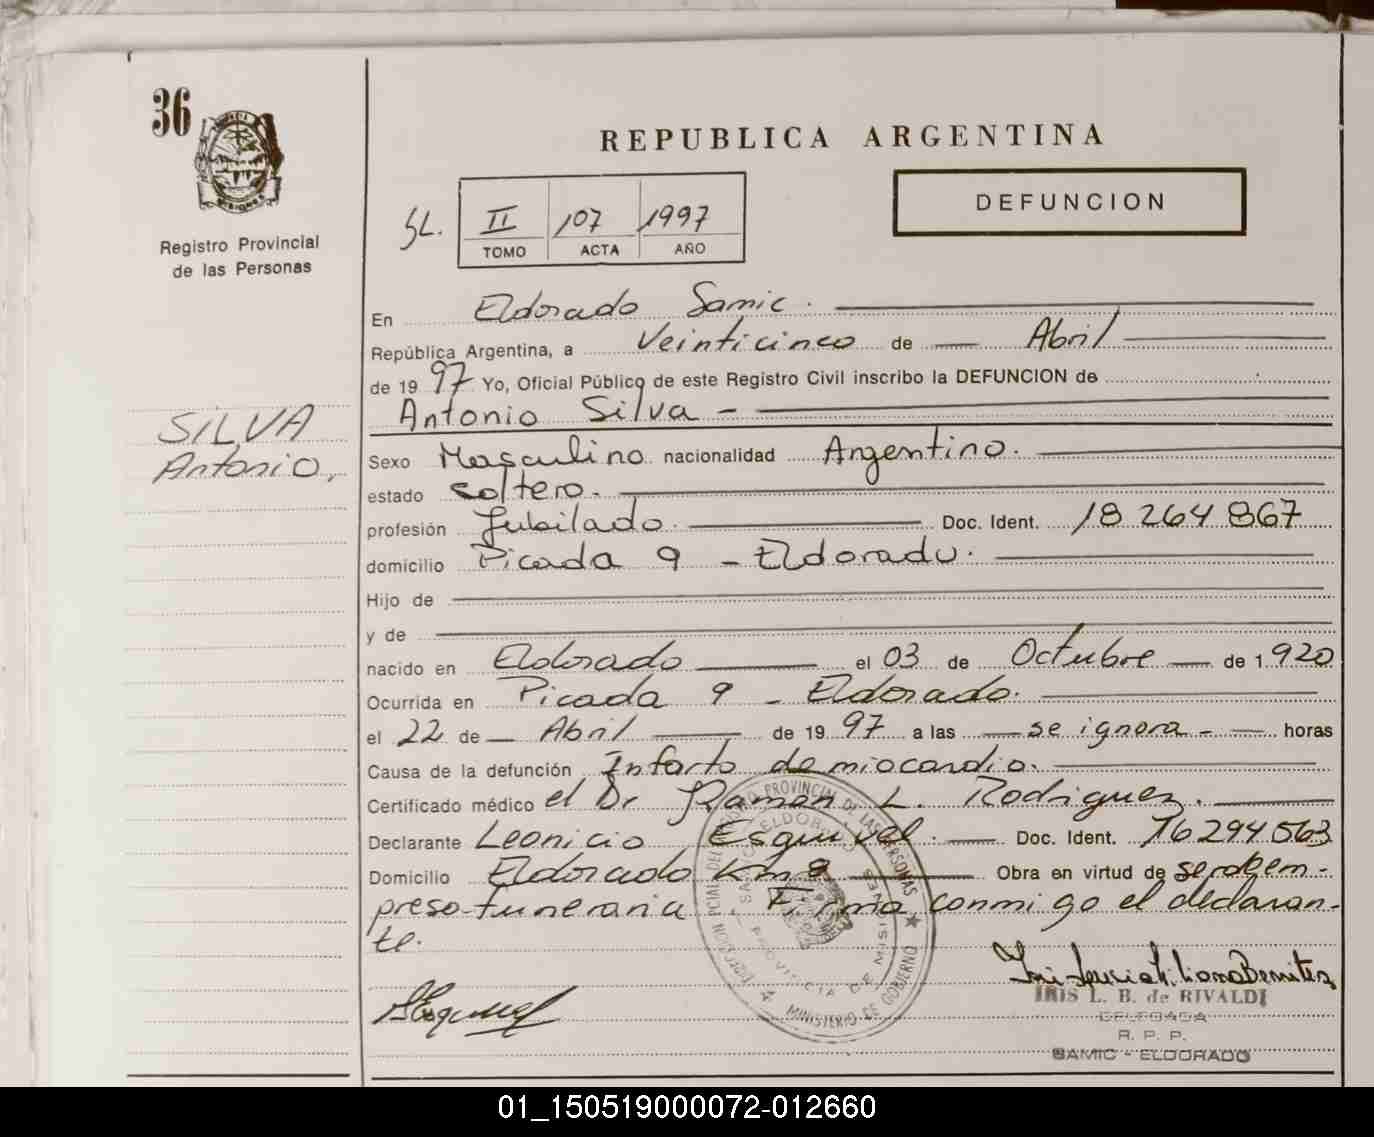 36
Registro Provincial
de las Personas
REPUBLICA ARGENTINA
DEFUNCION
SL. II 107 1997
TOMO ACTA AÑO
En Eldorado Samic.
República Argentina, a Veinticinco de — Abril
de 1997 Yo, Oficial Público de este Registro Civil inscribo la DEFUNCION de
Antonio Silva -
SILVA
Antonio,
Sexo Masculino nacionalidad Argentino.
estado soltero.
profesión Jubilado. Doc. Ident. 18 264 867
domicilio Picada 9 - Eldorado.
Hijo de
y de
nacido en Eldorado el 03 de Octubre — de 1920
Ocurrida en Picada 9 - Eldorado.
el 22 de — Abril — de 1997 a las — se ignora - — horas
Causa de la defunción Infarto de miocardio.
Certificado médico el Dr Raman L. Rodriguez.
Declarante Leonicio Esquivel. — Doc. Ident. 16294563
Domicilio Eldorado Km 8 — Obra en virtud de ser de em-
presa funeraria Firma conmigo el declaran-
te.
IRIS L. B. de RIVALDI
DELEGADA
R. P. P.
SAMIC - ELDORADO
MINISTERIO DE GOBIERNO
PROVINCIA DE MISIONES
01_150519000072-012660